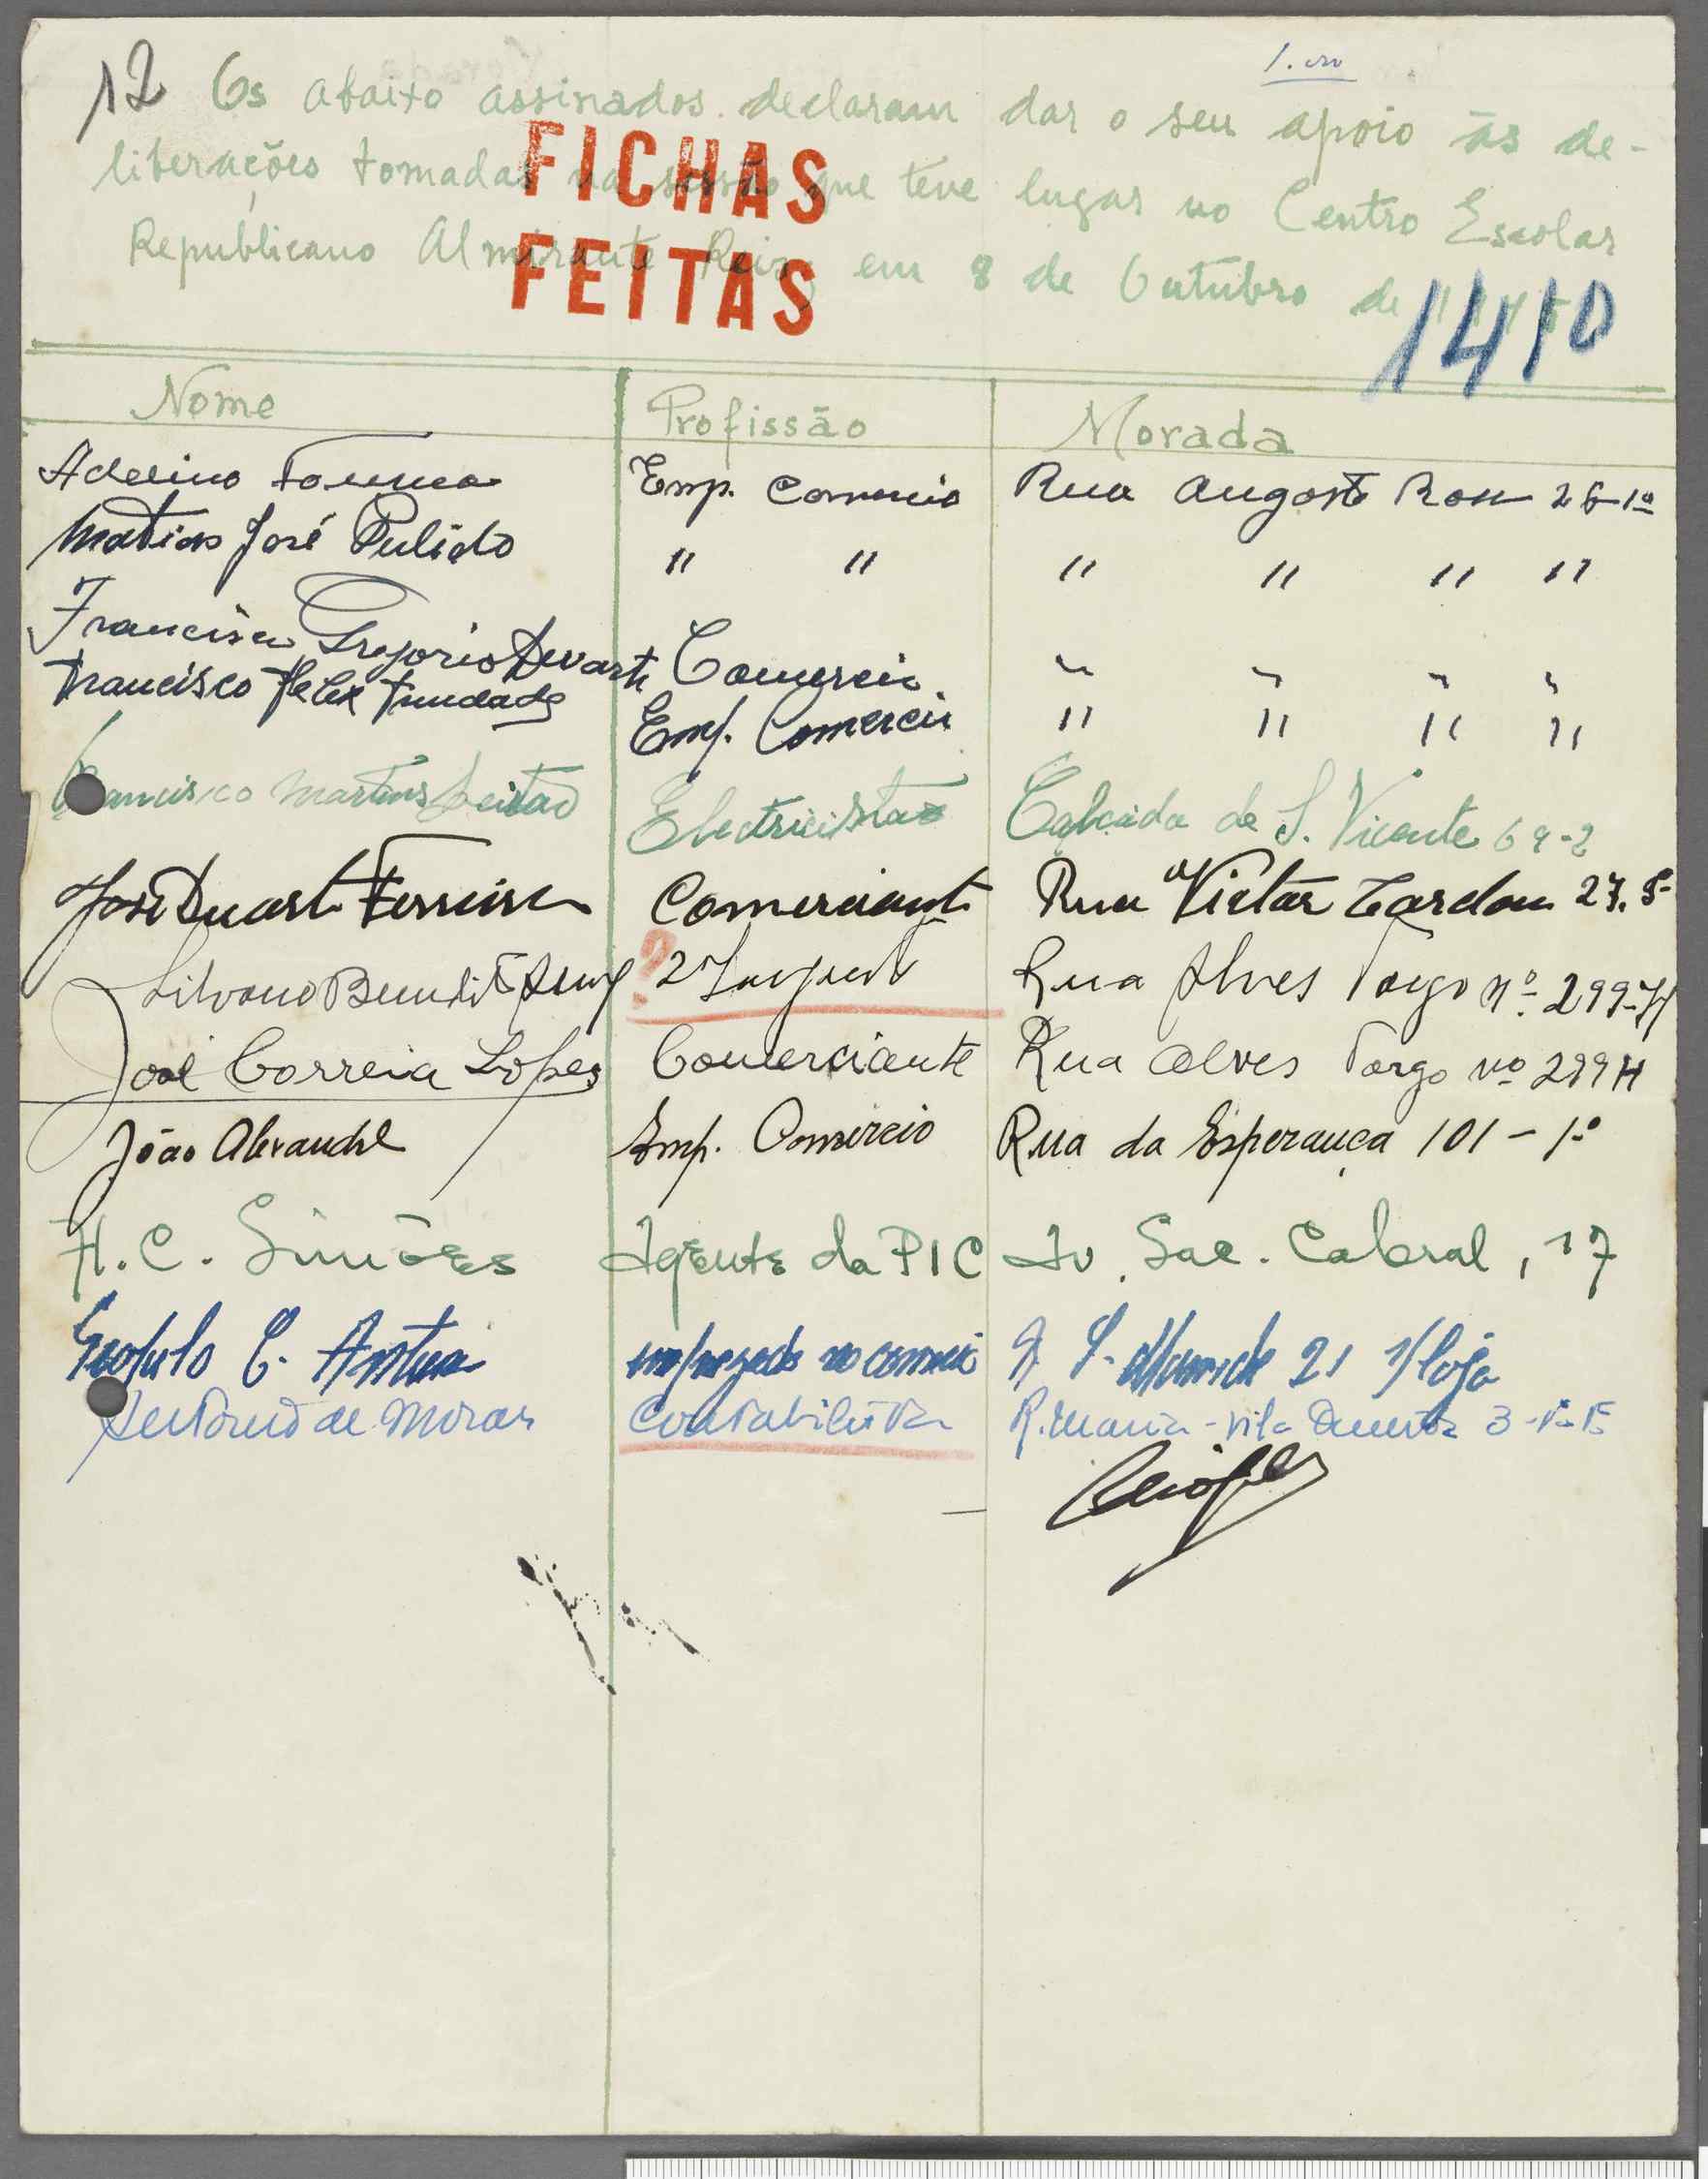 12
1.
Os abaixo assinados declaram dar o seu apoio ás de-
liberações tomadas na sessão que teve lugar no Centro Escolar
Republicano Almirante Reis, em 8 de Outubro de 1945
FICHAS
FEITAS
1410
Nome Profissão Morada
Adelino Emp. Comercio Rua Augosto Rosa 26-1º
Matias José Pulido " " " " " "
Francisco Gregorio Duarte Comercio " " " "
Francisco Felex Trindade Emp. Comercio " " " "
Francisco Martins Leitão Electricista Calcada de S. Vicente 69-2
José Duarte Ferreira Comerciante Rua Victor Cordon 27.
Silvano ? 2 Rua Alves Torgo nº 299-H
José Correia Lopes Comerciante Rua Alves Torgo nº 299 H
João Alexandre Emp. Comércio Rua da Esperança 101-1º
H. C. Simões Agente da PIC Av. Sac. Cabral, 17
C. empregado no comercio 21 loja
de Morais Contabilista R. Maria - Vila 3-